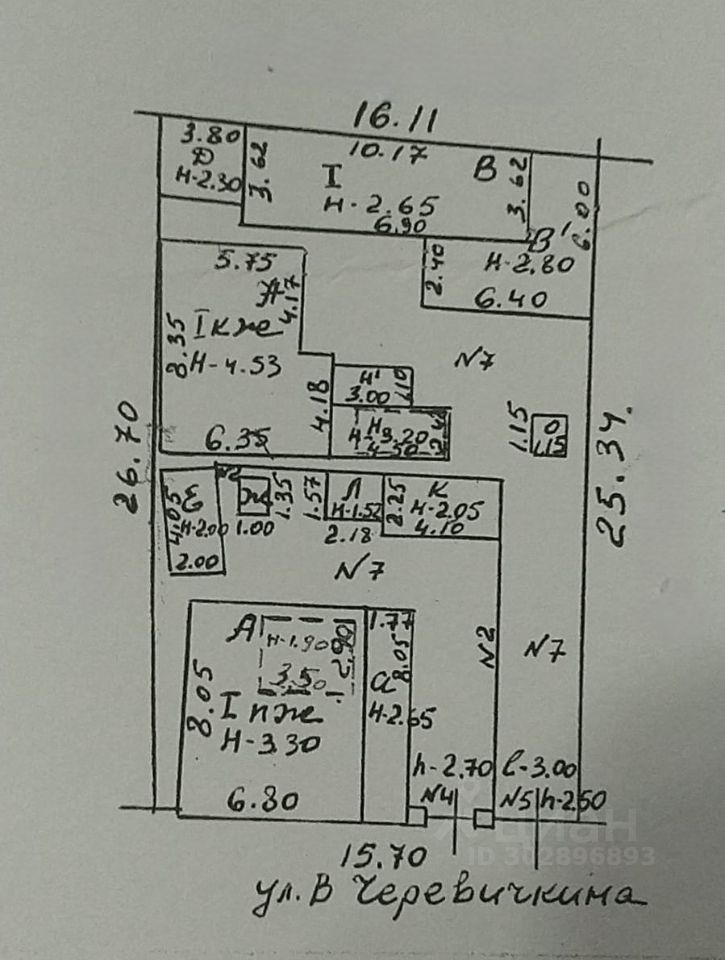 16.11
3.80
Д
H-2.30
3.62
10.17
I
В
H-2.65
6.90
3.62
6.00
В'
2.40
H-2.80
6.40
5.75
4.17
8.35
I кже
H-4.53
4.18
6.35
Н'
3.00
Н
4.50
N7
1.15
О
1.15
26.70
25.34.
Е
4.05
H-2.00
2.00
Ж
1.35
1.00
1.57
Л
H-1.52
2.18
2.25
К
H-2.05
4.10
N7
N2
N7
А
H-1.90
2.90
3.50
8.05
I пже
H-3.30
6.80
1.77
8.05
а
H-2.65
h-2.70
N4
l-3.00
N5
h-2.50
15.70
ул. В Черевичкина
циан
ID 302896893